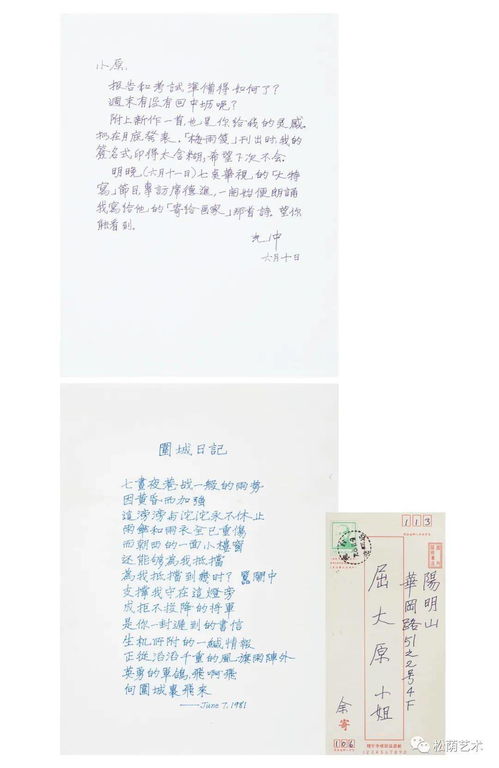 小原，
报告和考試準備得如何了？
週末有没有回中坜呢？
附上新作一首，也是你给我的灵感。
拟在月底發表。「梅雨笺」刊出时，我的
簽名式印得太含糊，希望下次不会。
明晚(六月十一日)七点華視的「大特
寫」節目專訪席德進，一開始便朗誦
我寫给他的「寄给画家」那首詩，望你
能看到。
光中
六月十日
圍城日記
七晝夜巷战一般的雨势
因黄昏而加強
這滂滂与沱沱永不休止
雨傘和雨衣全已重傷
而朝西的一面小樓窗
还能够為我抵擋
為我抵擋到幾时？驚鬧中
支撐我守在這燈旁
成拒不投降的将軍
是你一封遲到的書信
生机所附的一緘情報
正從滔滔千重的風旗雨陣外
英勇的軍鴿，飛啊飛
向圍城裏飛來
——June 7, 1981
113
陽明山
華岡路51之2号4F
屈大原小姐
余寄
106
松荫艺术